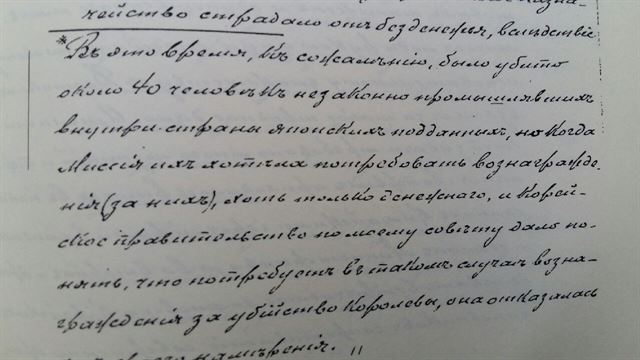 чейство страдало отъ безденежья, вслѣдствіе
*Въ это время, къ сожалѣнію, было убито
около 40 человѣкъ незаконно промышлявшихъ
внутри страны японскихъ подданныхъ, но когда
Миссія ихъ хотѣла потребовать вознагражде-
нія (за нихъ), хоть только денежнаго, и Корей-
ское правительство по моему совѣту дало по-
нять, что потребуетъ въ такомъ случаѣ возна-
гражденія за убійство Королевы, она отказалась
намѣренія.